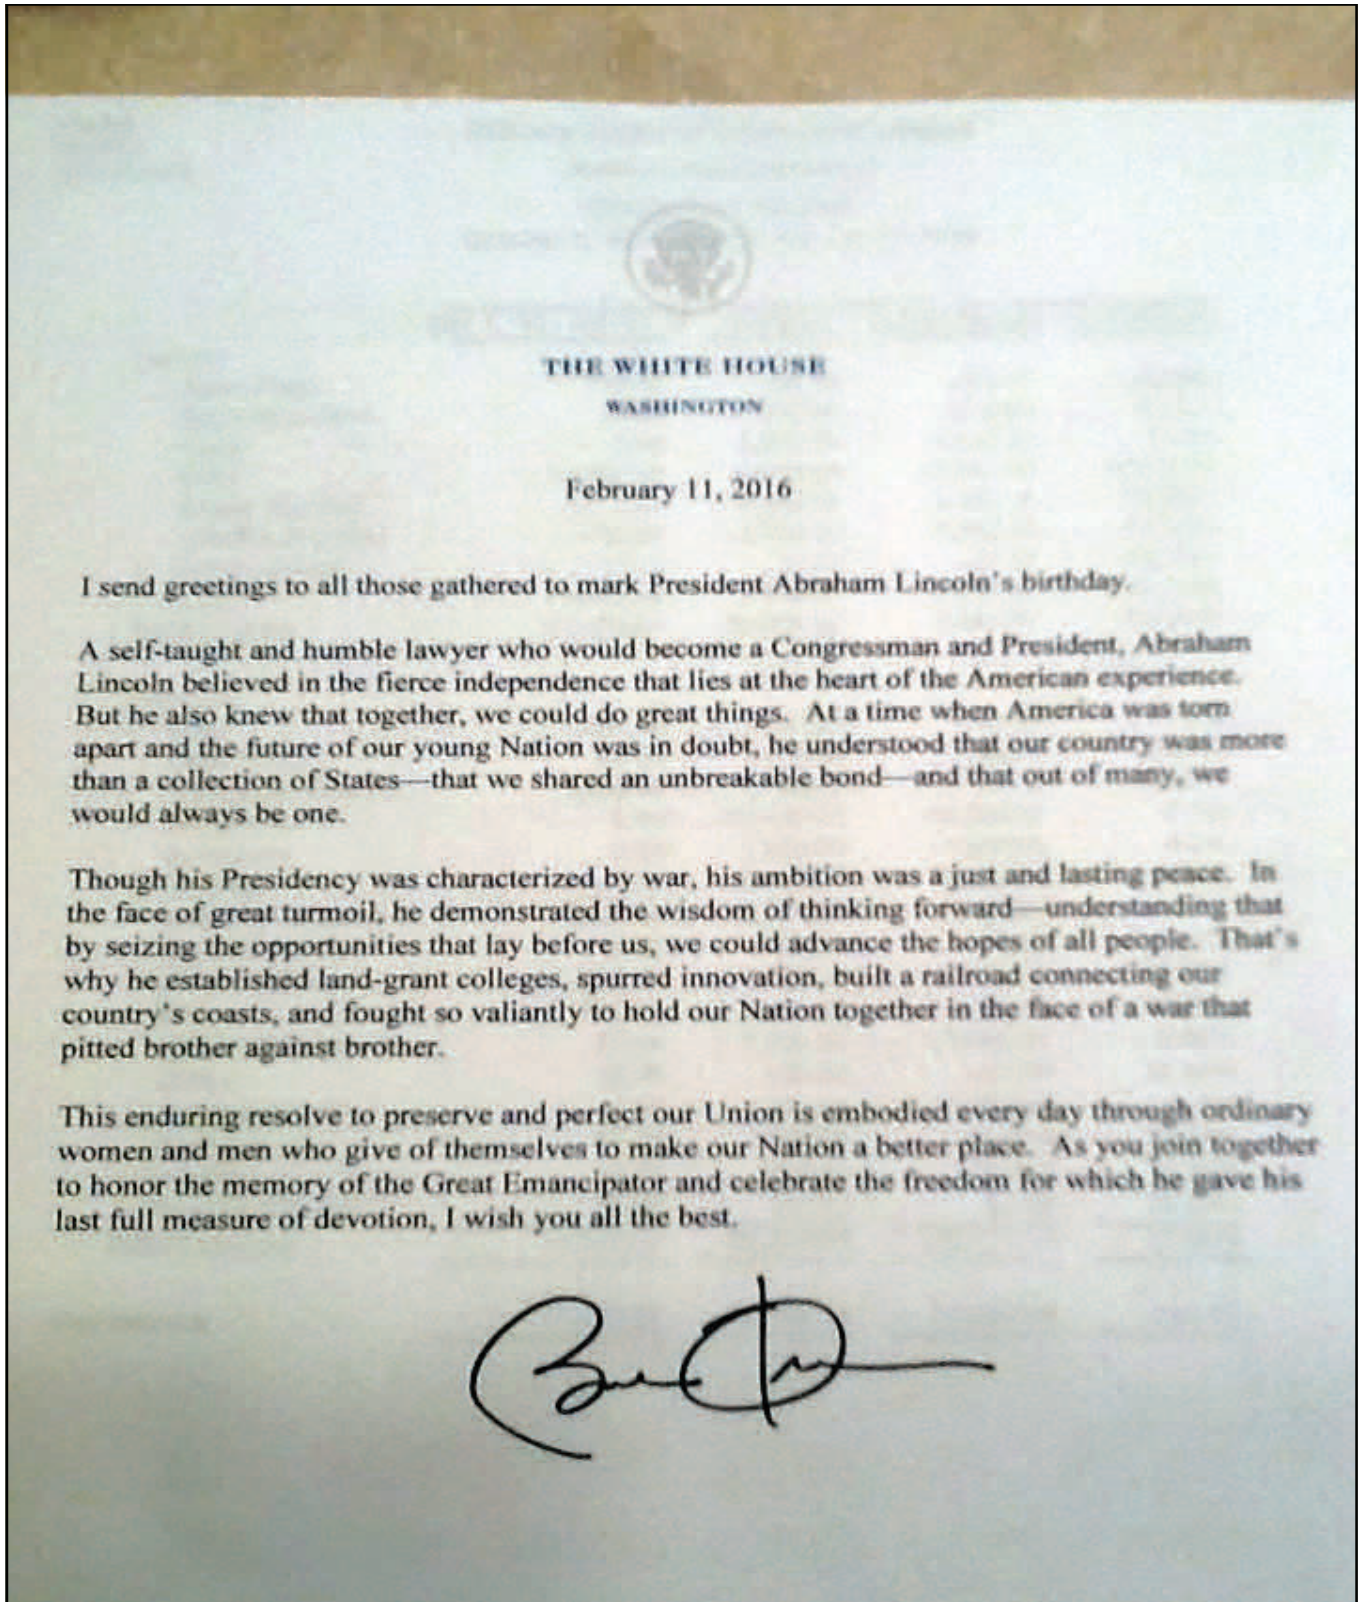 THE WHITE HOUSE
WASHINGTON
February 11, 2016
I send greetings to all those gathered to mark President Abraham Lincoln's birthday.
A self-taught and humble lawyer who would become a Congressman and President, Abraham
Lincoln believed in the fierce independence that lies at the heart of the American experience.
But he also knew that together, we could do great things. At a time when America was torn
apart and the future of our young Nation was in doubt, he understood that our country was more
than a collection of States—that we shared an unbreakable bond—and that out of many, we
would always be one.
Though his Presidency was characterized by war, his ambition was a just and lasting peace. In
the face of great turmoil, he demonstrated the wisdom of thinking forward—understanding that
by seizing the opportunities that lay before us, we could advance the hopes of all people. That's
why he established land-grant colleges, spurred innovation, built a railroad connecting our
country's coasts, and fought so valiantly to hold our Nation together in the face of a war that
pitted brother against brother.
This enduring resolve to preserve and perfect our Union is embodied every day through ordinary
women and men who give of themselves to make our Nation a better place. As you join together
to honor the memory of the Great Emancipator and celebrate the freedom for which he gave his
last full measure of devotion, I wish you all the best.